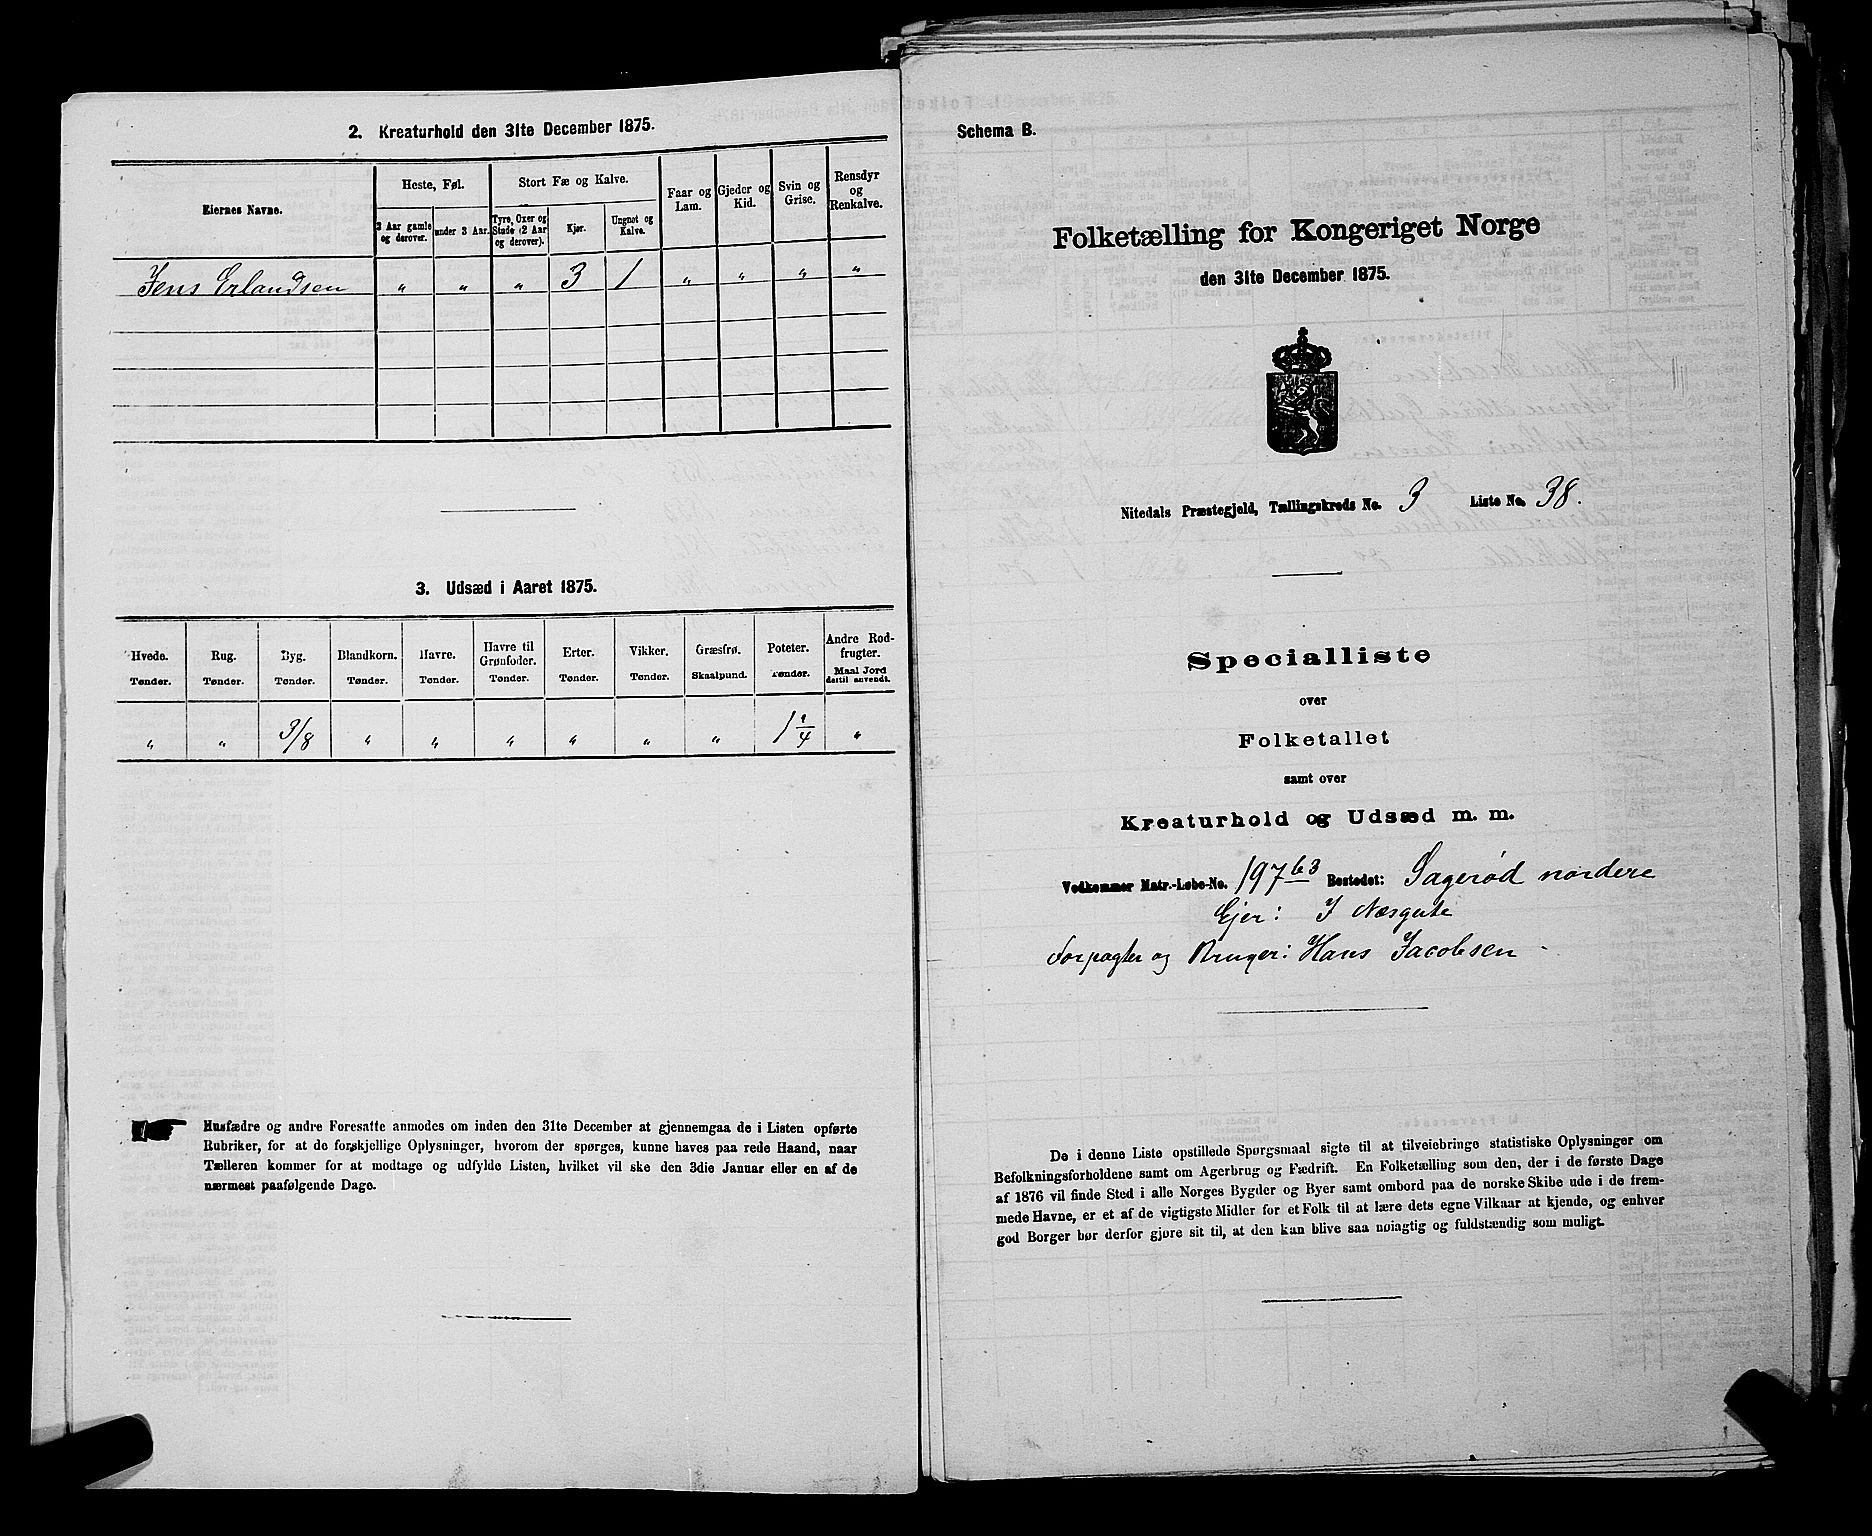 2. Kreaturhold den 31te December 1875.
Eiernes Navne.
Heste, Føl.
Stort Fæ og Kalve.
Faar og Lam.
Gjeder og Kid.
Svin og Grise.
Rensdyr og Renkalve.
3 Aar gamle og derover.
under 3 Aar.
Tyre, Oxer og Stude (2 Aar og derover).
Kjør.
Ungnøt og Kalve.
Jens Erlandsen " " " 3 1 " " " "
3. Udsæd i Aaret 1875.
Hvede. Rug. Byg. Blandkorn. Havre. Havre til Grønfoder. Erter. Vikker. Græsfrø. Poteter. Andre Rodfrugter.
Tønder. Tønder. Tønder. Tønder. Tønder. Tønder. Tønder. Tønder. Skaalpund. Tønder. Maal Jord dertil anvendt.
" " 3/8 " " " " " " 1 1/4 "
Husfædre og andre Foresatte anmodes om inden den 31te December at gjennemgaa de i Listen opførte
Rubriker, for at de forskjellige Oplysninger, hvorom der spørges, kunne haves paa rede Haand, naar
Tælleren kommer for at modtage og udfylde Listen, hvilket vil ske den 3die Januar eller en af de
nærmest paafølgende Dage.
Schema B.
Folketælling for Kongeriget Norge
den 31te December 1875.
Nitedals Præstegjeld, Tællingskreds No. 3 Liste No. 38.
Specialliste
over
Folketallet
samt over
Kreaturhold og Udsæd m. m.
Vedkommer Matr.-Løbe-No. 197 b3 Bostedet: Sagerød nordere
Ejer: J Næsgute
Forpagter og Bruger: Hans Jacobsen
De i denne Liste opstillede Spørgsmaal sigte til at tilveiebringe statistiske Oplysninger om
Befolkningsforholdene samt om Agerbrug og Fædrift. En Folketælling som den, der i de første Dage
af 1876 vil finde Sted i alle Norges Bygder og Byer samt ombord paa de norske Skibe ude i de frem-
mede Havne, er et af de vigtigste Midler for et Folk til at lære dets egne Vilkaar at kjende, og enhver
god Borger bør derfor gjøre sit til, at den kan blive saa nøiagtig og fuldstændig som muligt.